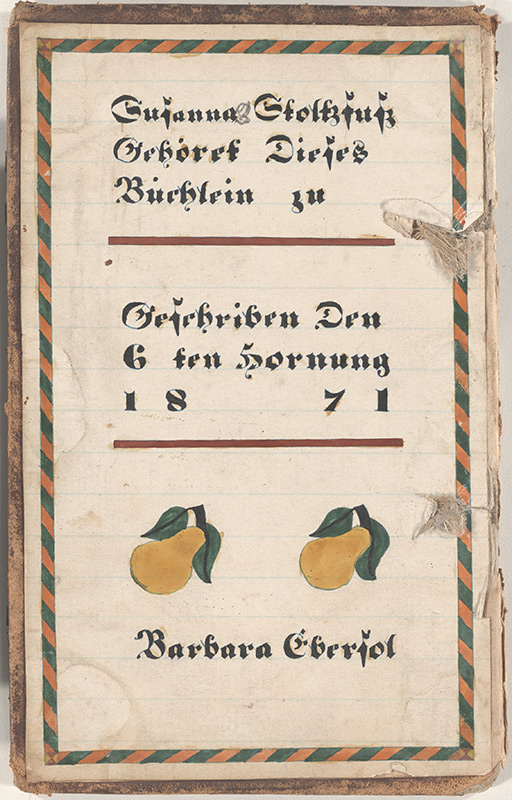 Susanna Stoltzfusz
Gehöret Dieses
Büchlein zu
Geschriben Den
6 ten Hornung
18 71
Barbara Ebersol